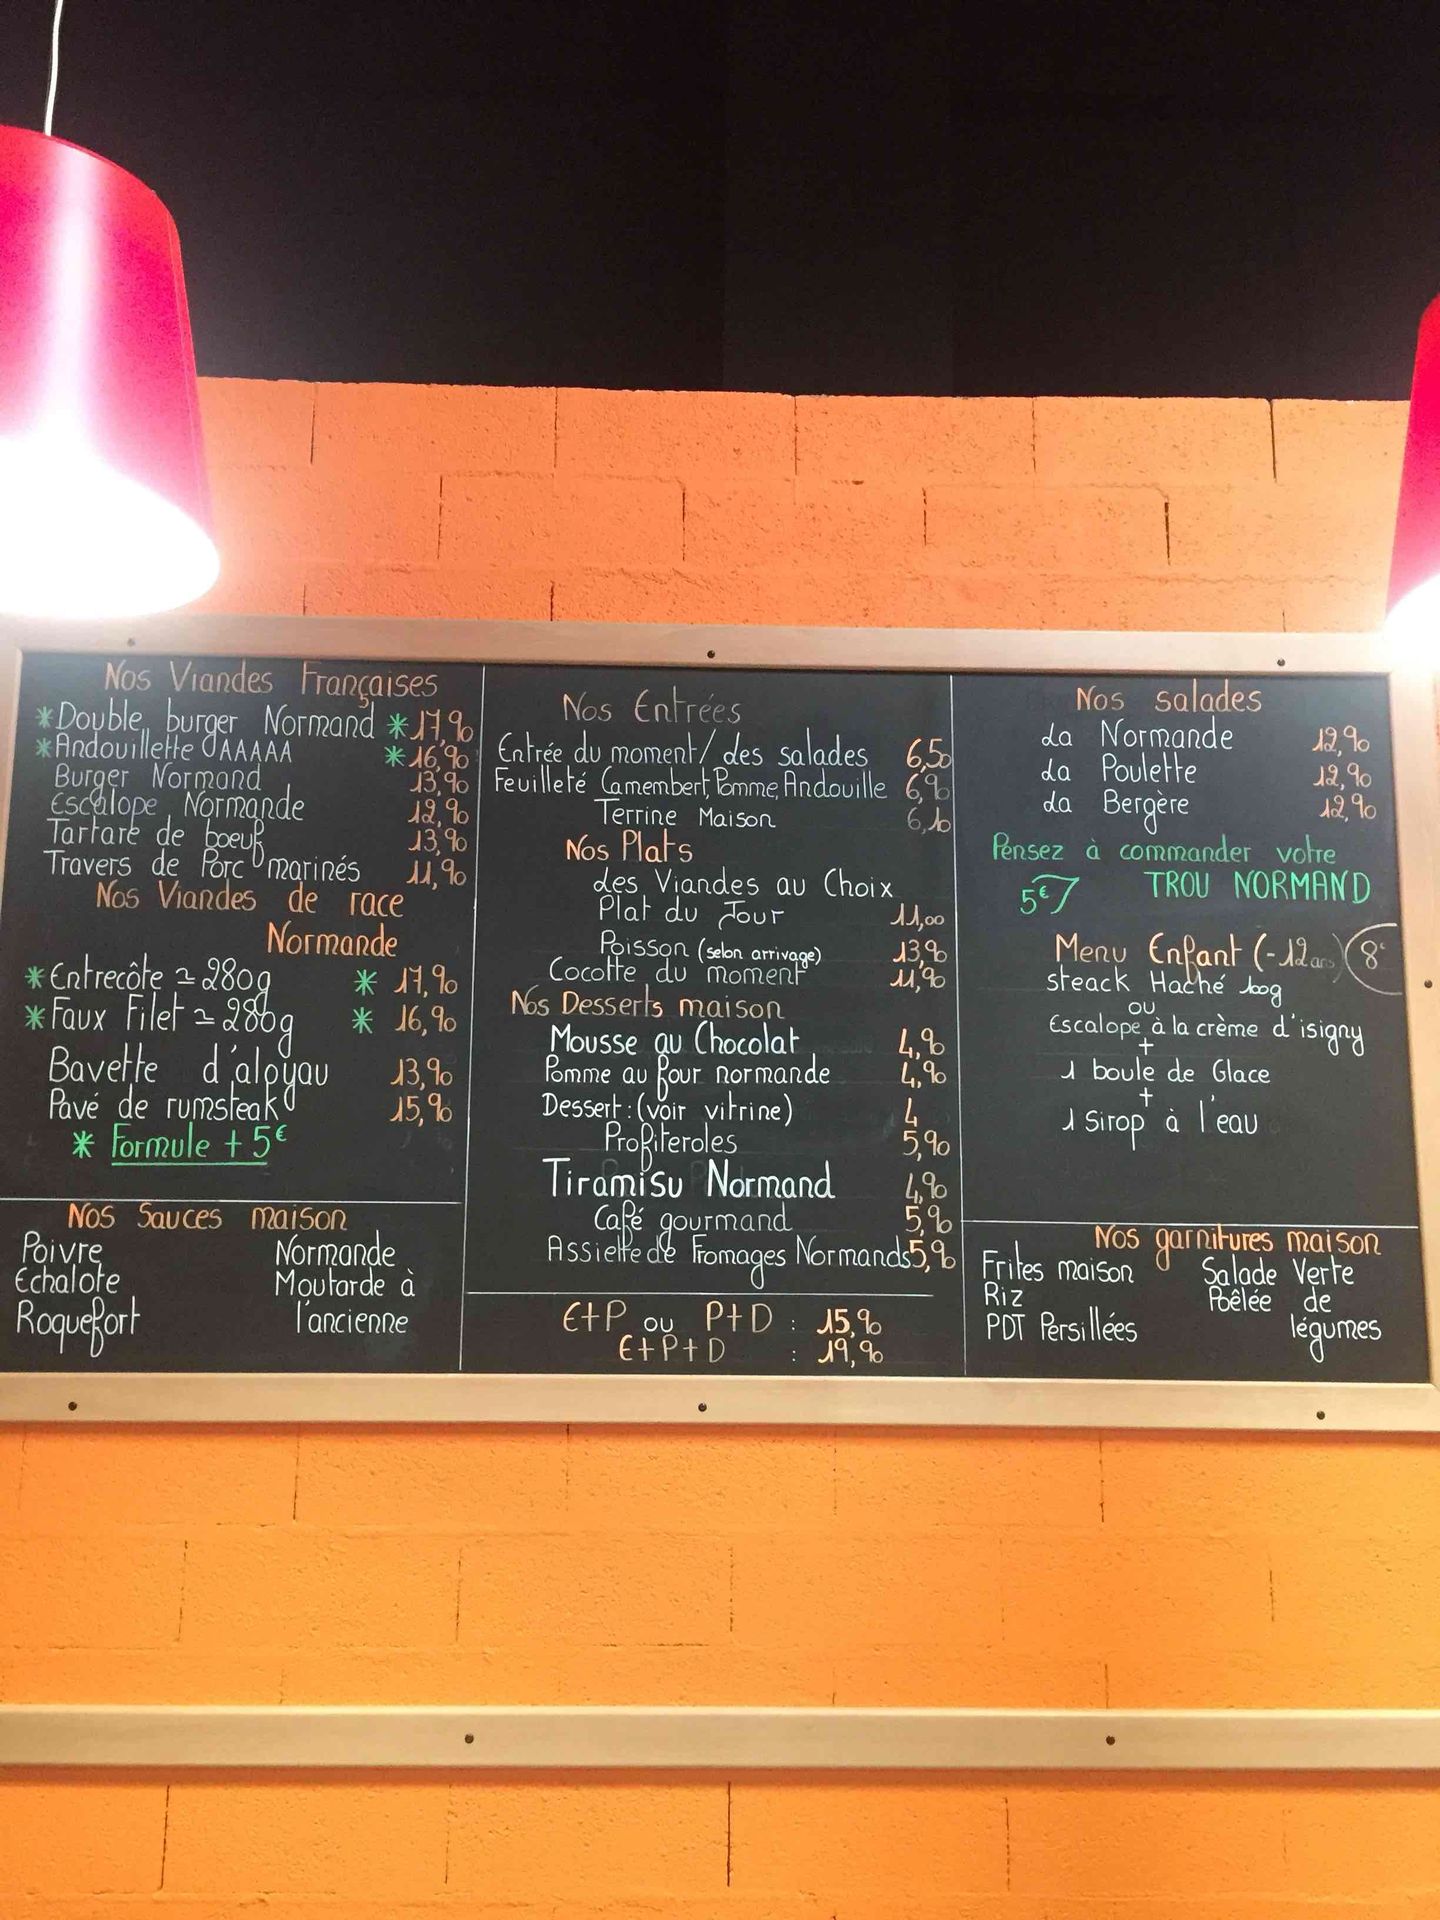 Nos Viandes Françaises
*Double burger Normand *17,90
*Andouillette AAAAA *16,90
Burger Normand 13,90
Escalope Normande 12,90
Tartare de boeuf 13,90
Travers de Porc marinés 11,90
Nos Viandes de race
Normande
*Entrecôte ≃ 280g * 17,90
*Faux Filet ≃ 280g * 16,90
Bavette d'aloyau 13,90
Pavé de rumsteak 15,90
* Formule + 5€
Nos Sauces maison
Poivre Normande
Echalote Moutarde à
Roquefort l'ancienne
Nos Entrées
Entrée du moment/des salades 6,50
Feuilleté Camembert, Pomme, Andouille 6,90
Terrine Maison 6,10
Nos Plats
Les Viandes au Choix
Plat du Jour 11,00
Poisson (selon arrivage) 13,90
Cocotte du moment 11,90
Nos Desserts maison
Mousse au Chocolat 4,90
Pomme au four normande 4,90
Dessert : (voir vitrine) 4
Profiteroles 5,90
Tiramisu Normand 4,90
Café gourmand 5,90
Assiette de Fromages Normands 5,90
E+P ou P+D : 15,90
E+P+D : 19,90
Nos salades
La Normande 12,90
La Poulette 12,90
La Bergère 12,90
Pensez à commander votre
5€ TROU NORMAND
Menu Enfant (-12 ans) 8€
steack Haché 100g
ou
Escalope à la crème d'isigny
+
1 boule de Glace
+
1 Sirop à l'eau
Nos garnitures maison
Frites maison Salade Verte
Riz Poêlée de
PDT Persillées légumes